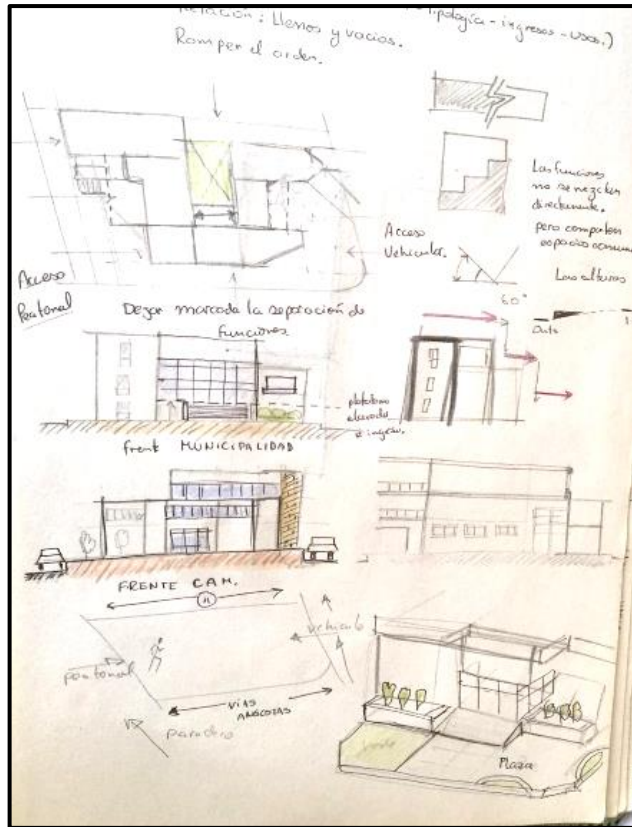 Relación: Llenos y vacíos.
tipología - ingresos - usos.)
Romper el orden.
Las funciones
no se mezclan
directamente.
pero comparten
espacio comun
Acceso
Vehicular.
60°
Las alturas
Acceso
Peatonal
Dejar marcada la separación de
funciones.
plataforma
elevada
ingreso.
frente MUNICIPALIDAD
FRENTE CAM.
N
vehiculo
peatonal
VÍAS
paradero
verde
Plaza